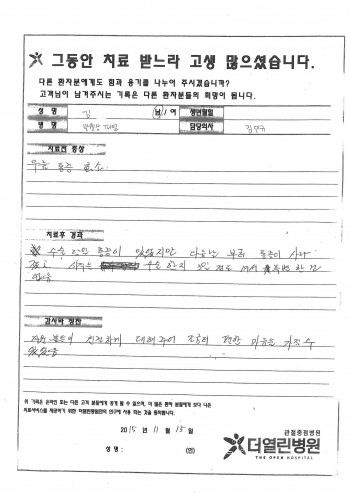 그동안 치료 받느라 고생 많으셨습니다.
다른 환자분에게도 힘과 용기를 나누어 주시겠습니까?
고객님이 남겨주시는 기록은 다른 환자분들의 희망이 됩니다.
성 명 김 남 / 여 생년월일
병 명 담당의사 김
치료전 증상
무릎 통증 호소.
치료후 경과
수술 당일 통증이 있었지만 다음날 부터 통증이 사라
수술 한지 3일 정도
없음
감사와 칭찬
직원 분들이 친절하게 대해주어 편한 마음을 가질 수
있었음
위 기록은 온라인 또는 다른 고객 분들에게 공개 될 수 있으며, 더 많은 환자 분들에게 보다 나은
의료서비스를 제공하기 위한 더열린병원만의 연구에 사용 되는 것을 동의합니다.
2015년 11월 13일
성 명 : (인)
관절중점병원
더열린병원
THE OPEN HOSPITAL